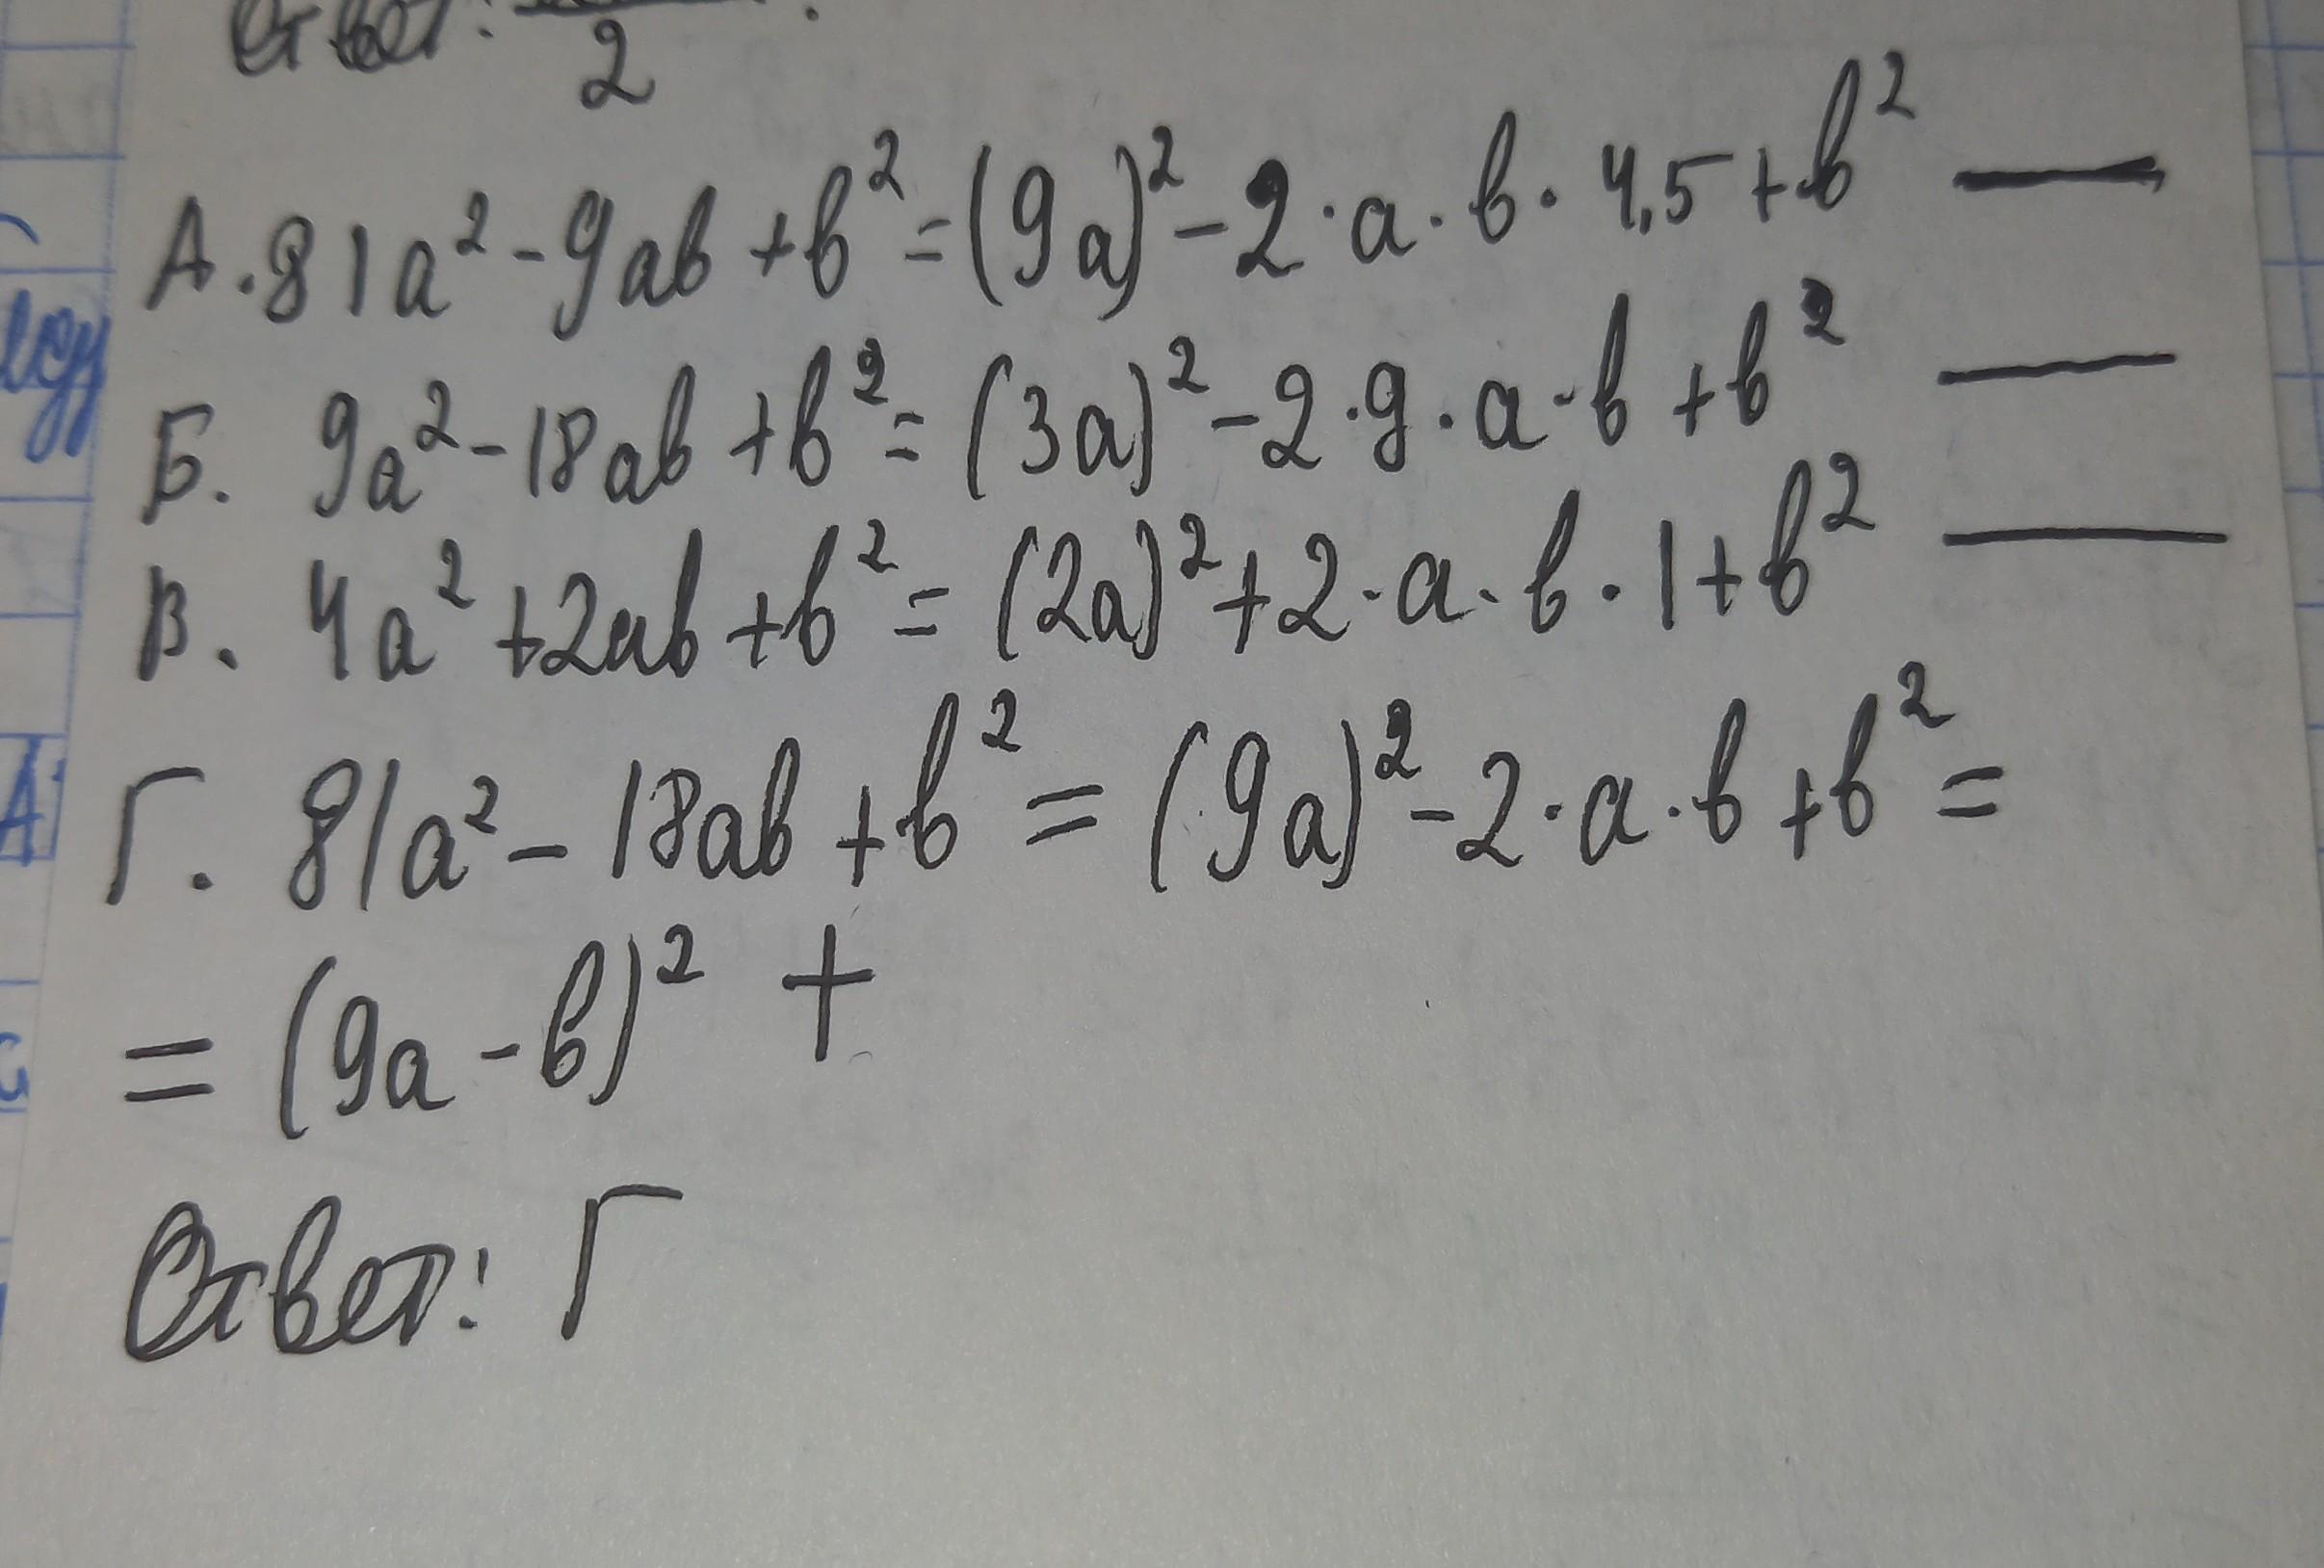 Ответ: 2
А. 81a² - 9ab + b² = (9a)² - 2 · a · b · 4,5 + b² —
Б. 9a² - 18ab + b² = (3a)² - 2 · 9 · a · b + b² —
В. 4a² + 2ab + b² = (2a)² + 2 · a · b · 1 + b² —
Г. 81a² - 18ab + b² = (9a)² - 2 · a · b + b² =
= (9a - b)² +
Ответ: Г